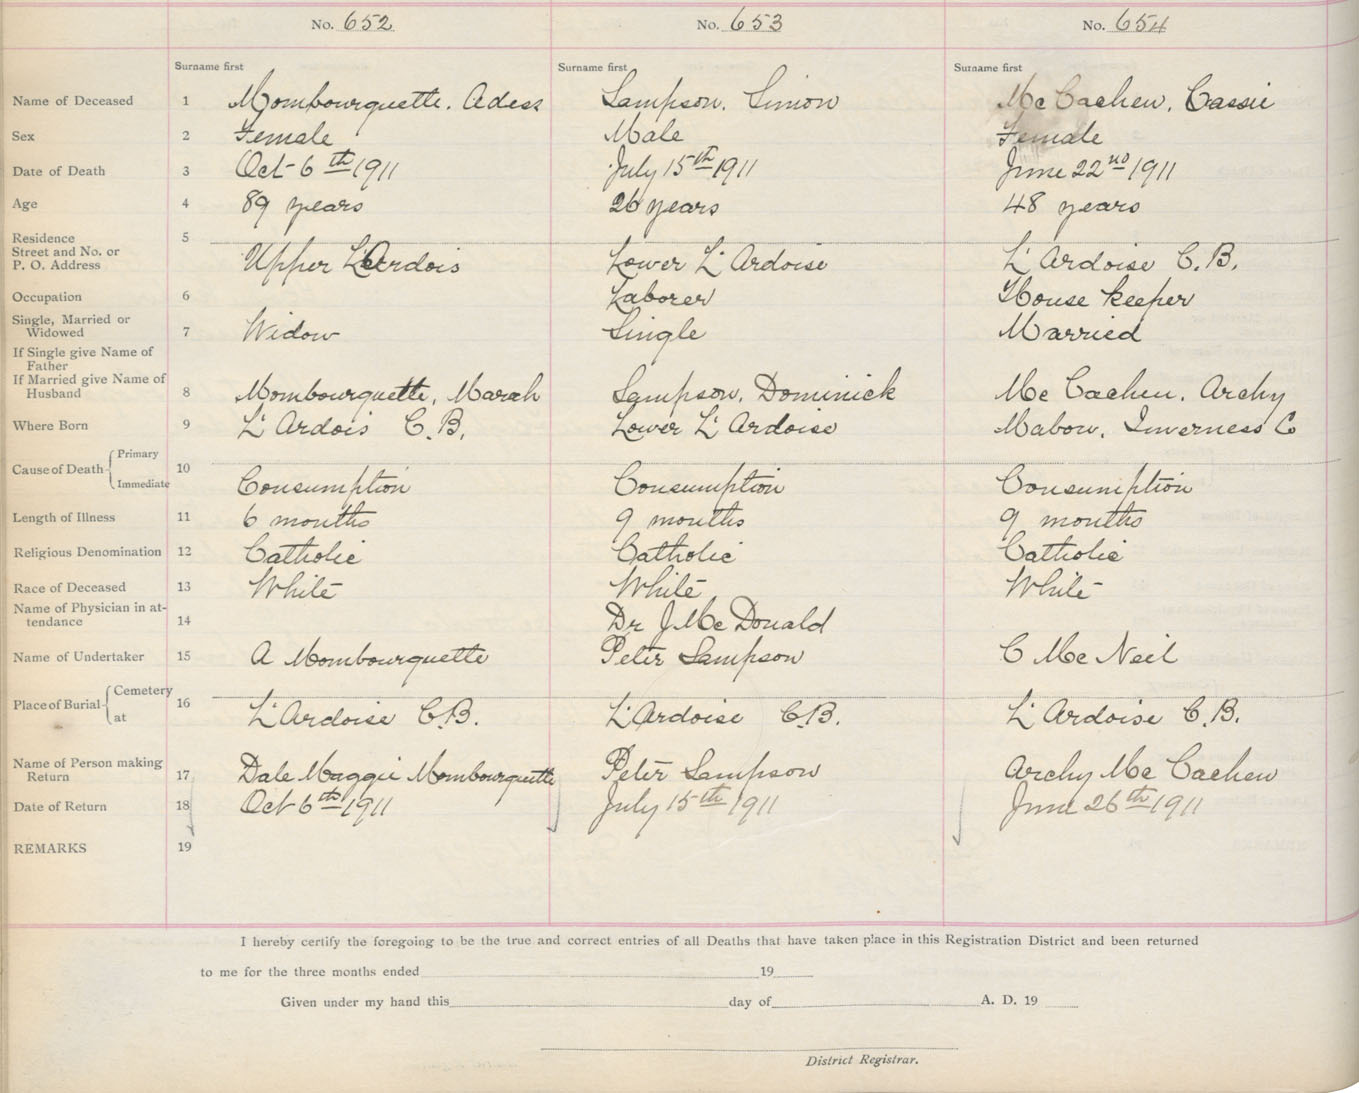 No. 652 No. 653 No. 654
Surname first Surname first Surname first
Name of Deceased 1 Mombourquette. Sampson, Simon Mc Cachen, Cassie
Sex 2 Female Male Female
Date of Death 3 Oct 6th 1911 July 15th 1911 June 22nd 1911
Age 4 89 years 26 years 48 years
Residence 5
Street and No. or
P. O. Address Upper L'Ardois Lower L'Ardoise L'Ardoise C.B.
Occupation 6 Laborer House keeper
Single, Married or
Widowed 7 Widow Single Married
If Single give Name of
Father
If Married give Name of
Husband 8 Mombourquette, Sampson, Dominick Mc Cachen. Archy
Where Born 9 L'Ardois C.B. Lower L'Ardoise Mabow, Inverness Co
Cause of Death Primary 10
Immediate Consumption Consumption Consumption
Length of Illness 11 6 months 9 months 9 months
Religious Denomination 12 Catholic Catholic Catholic
Race of Deceased 13 White White White
Name of Physician in at-
tendance 14 Dr J. McDonald
Name of Undertaker 15 A Mombourquette Peter Sampson C McNeil
Place of Burial Cemetery 16
at L'Ardoise C.B. L'Ardoise C.B. L'Ardoise C.B.
Name of Person making
Return 17 Dale Maggie Mombourquette Peter Sampson Archy Mc Cachen
Date of Return 18 Oct 6th 1911 July 15th 1911 June 26th 1911
REMARKS 19
I hereby certify the foregoing to be the true and correct entries of all Deaths that have taken place in this Registration District and been returned
to me for the three months ended 19
Given under my hand this day of A. D. 19
District Registrar.